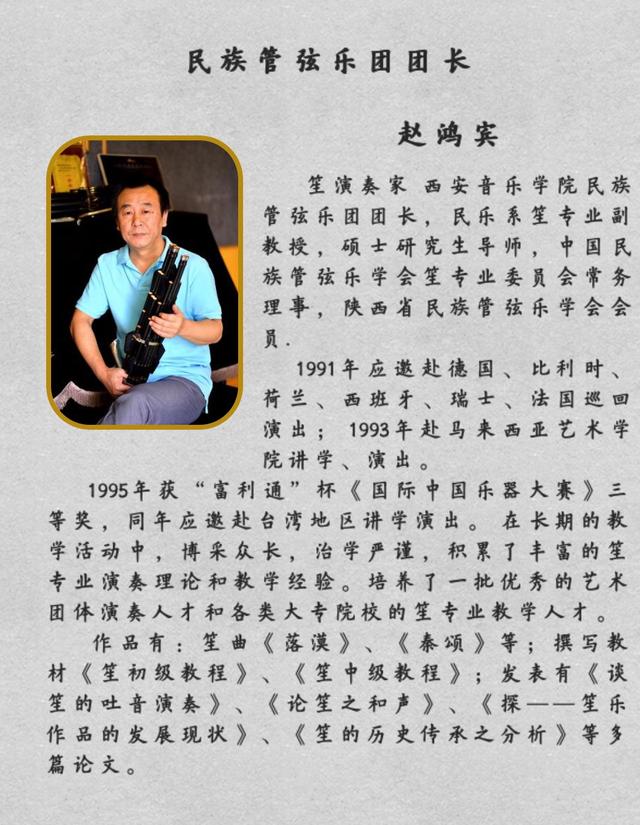 民族管弦乐团团长
赵鸿宾
笙演奏家 西安音乐学院民族
管弦乐团团长，民乐系笙专业副
教授，硕士研究生导师，中国民
族管弦乐学会笙专业委员会常务
理事，陕西省民族管弦乐学会会
员.
1991年应邀赴德国、比利时、
荷兰、西班牙、瑞士、法国巡回
演出；1993年赴马来西亚艺术学
院讲学、演出。
1995年获“富利通”杯《国际中国乐器大赛》三
等奖，同年应邀赴台湾地区讲学演出。在长期的教
学活动中，博采众长，治学严谨，积累了丰富的笙
专业演奏理论和教学经验。培养了一批优秀的艺术
团体演奏人才和各类大专院校的笙专业教学人才。
作品有：笙曲《落漠》、《秦颂》等；撰写教
材《笙初级教程》、《笙中级教程》；发表有《谈
笙的吐音演奏》、《论笙之和声》、《探——笙乐
作品的发展现状》、《笙的历史传承之分析》等多
篇论文。